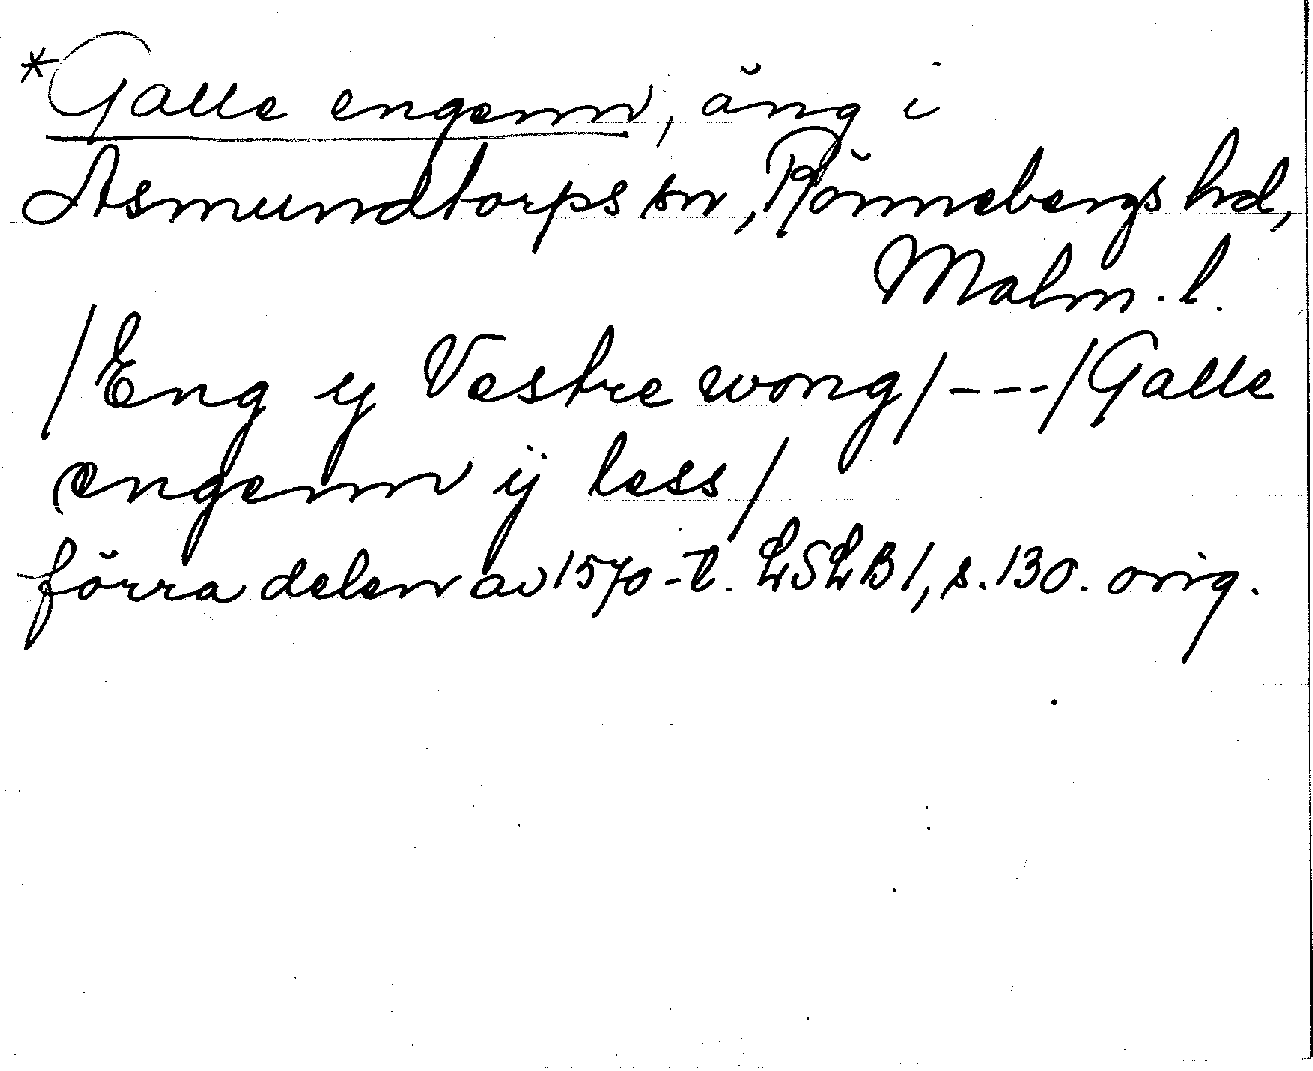 *Galle engenn, äng i
Asmundtorps sn, Rönnebergs hd,
Malm. l.
/Eng y Vestre wong/---/Galle
engenn ij less/
förra delen av 1570-t. LSLB 1, s. 130. orig.